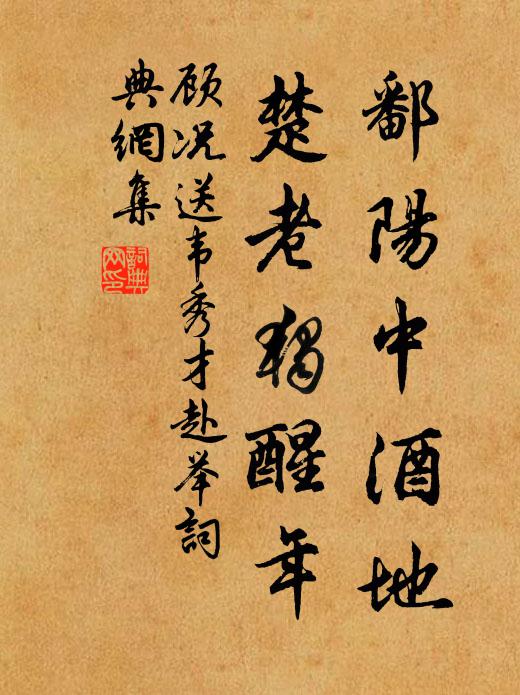 鄱陽中酒地
楚老獨醒年
顾况送韦秀才赴举詞
典網集
詞典網印